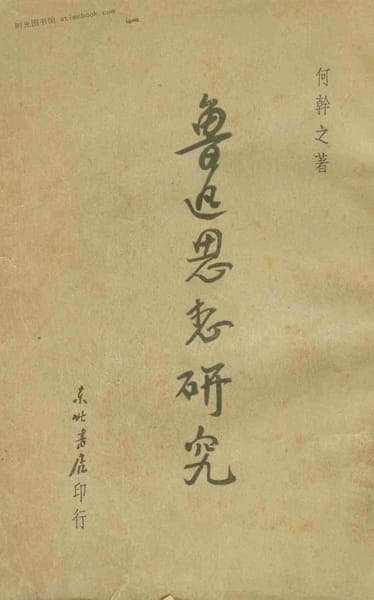 时光图书馆 atimebook.com
何幹之著
魯迅思想研究
东北書店印行